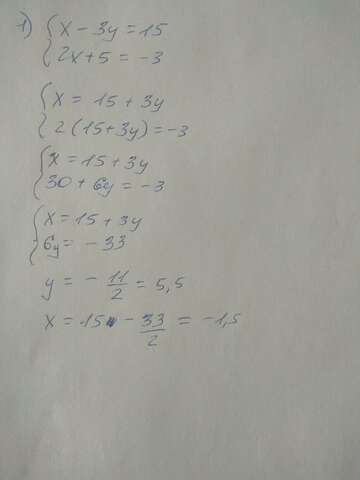 1) { x - 3y = 15
2x + 5 = -3
{ x = 15 + 3y
2(15+3y) = -3
{ x = 15 + 3y
30 + 6y = -3
{ x = 15 + 3y
6y = - 33
y = - 11/2 = 5,5
x = 15 - 33/2 = -1,5